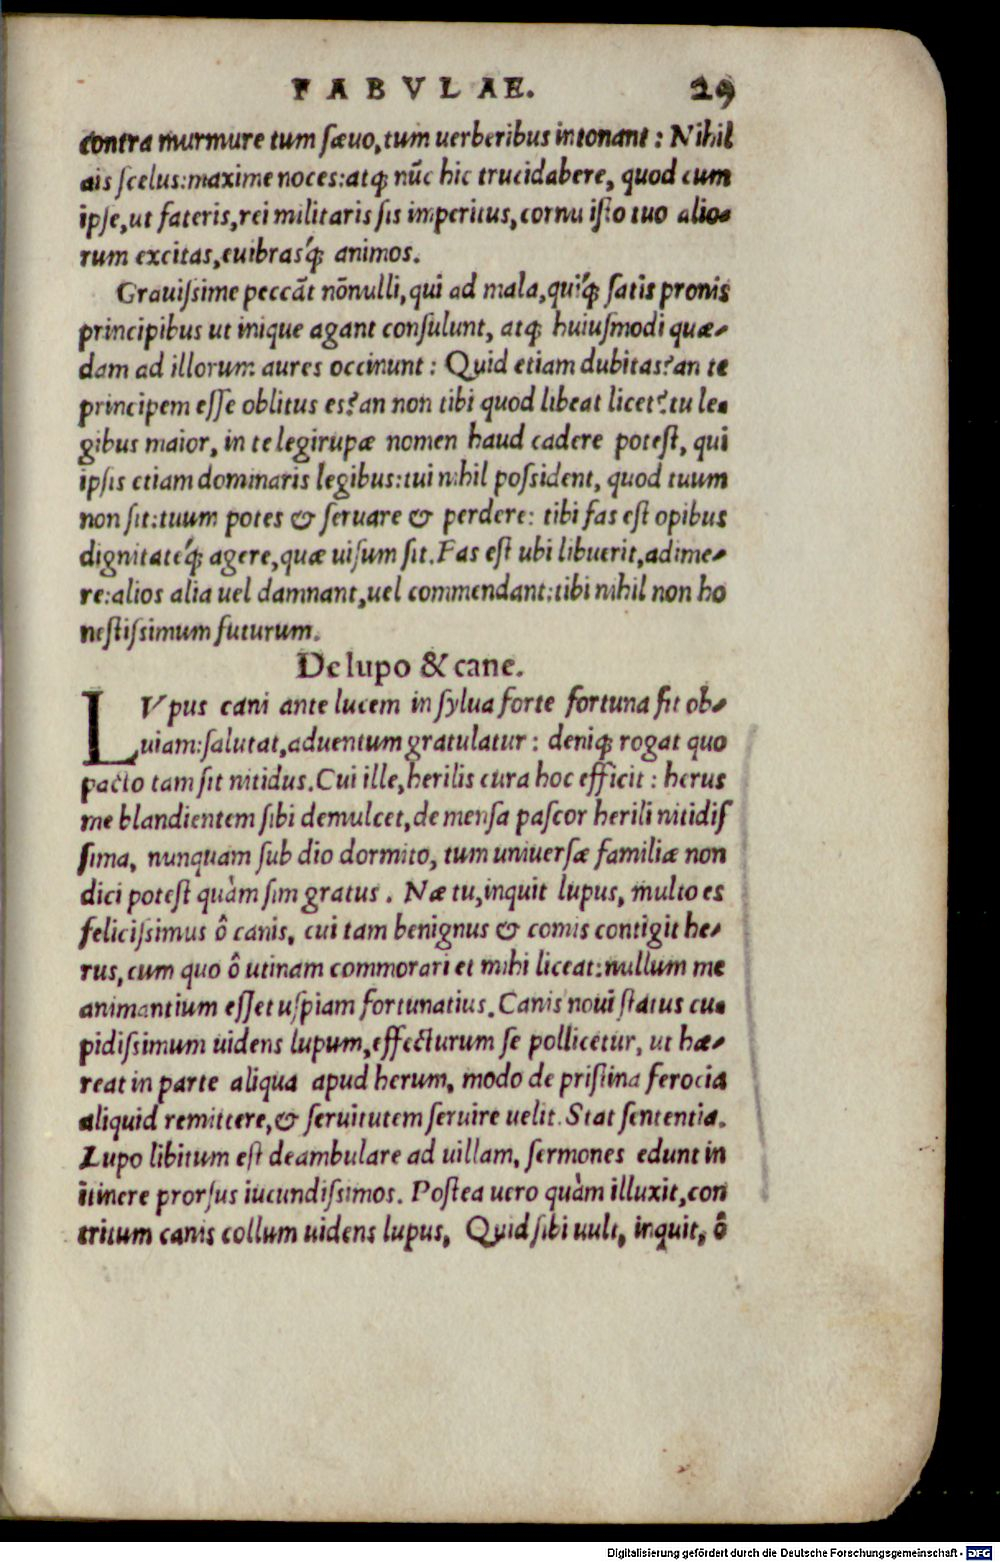 FABVLAE. 29
contra murmure tum sæuo, tum uerberibus intonant: Nihil
ais scelus: maxime noces: atq; nūc hic trucidabere, quod cum
ipse, ut fateris, rei militaris sis imperitus, cornu isto tuo alio-
rum excitas, cuibrasq́; animos.
Grauißime peccāt nōnulli, qui ad mala, quiq́; satis pronis
principibus ut inique agant consulunt, atq; huiusmodi quæ-
dam ad illorum aures occinunt: Quid etiam dubitas? an te
principem esse oblitus es? an non tibi quod libeat licet? tu le-
gibus maior, in te legirupæ nomen haud cadere potest, qui
ipsis etiam dominaris legibus: tui nihil poßident, quod tuum
non sit: tuum potes & seruare & perdere: tibi fas est opibus
dignitateq́; agere, quæ uisum sit. Fas est ubi libuerit, adime-
re: alios alia uel damnant, uel commendant: tibi nihil non ho
nestißimum futurum.
De lupo & cane.
LVpus cani ante lucem in sylua forte fortuna fit ob-
uiam: salutat, aduentum gratulatur: deniq; rogat quo
pacto tam sit nitidus. Cui ille, herilis cura hoc efficit: herus
me blandientem sibi demulcet, de mensa pascor herili nitidis
sima, nunquam sub dio dormito, tum uniuersæ familiæ non
dici potest quàm sim gratus. Næ tu, inquit lupus, multo es
felicißimus ô canis, cui tam benignus & comis contigit he-
rus, cum quo ô utinam commorari et mihi liceat: nullum me
animantium esset uspiam fortunatius. Canis noui status cu-
pidißimum uidens lupum, effecturum se pollicetur, ut hæ-
reat in parte aliqua apud herum, modo de pristina ferocia
aliquid remittere, & seruitutem seruire uelit. Stat sententia.
Lupo libitum est deambulare ad uillam, sermones edunt in
itinere prorsus iucundißimos. Postea uero quàm illuxit, con
tritum canis collum uidens lupus, Quid sibi uult, inquit, ô
Digitalisierung gefördert durch die Deutsche Forschungsgemeinschaft - DFG